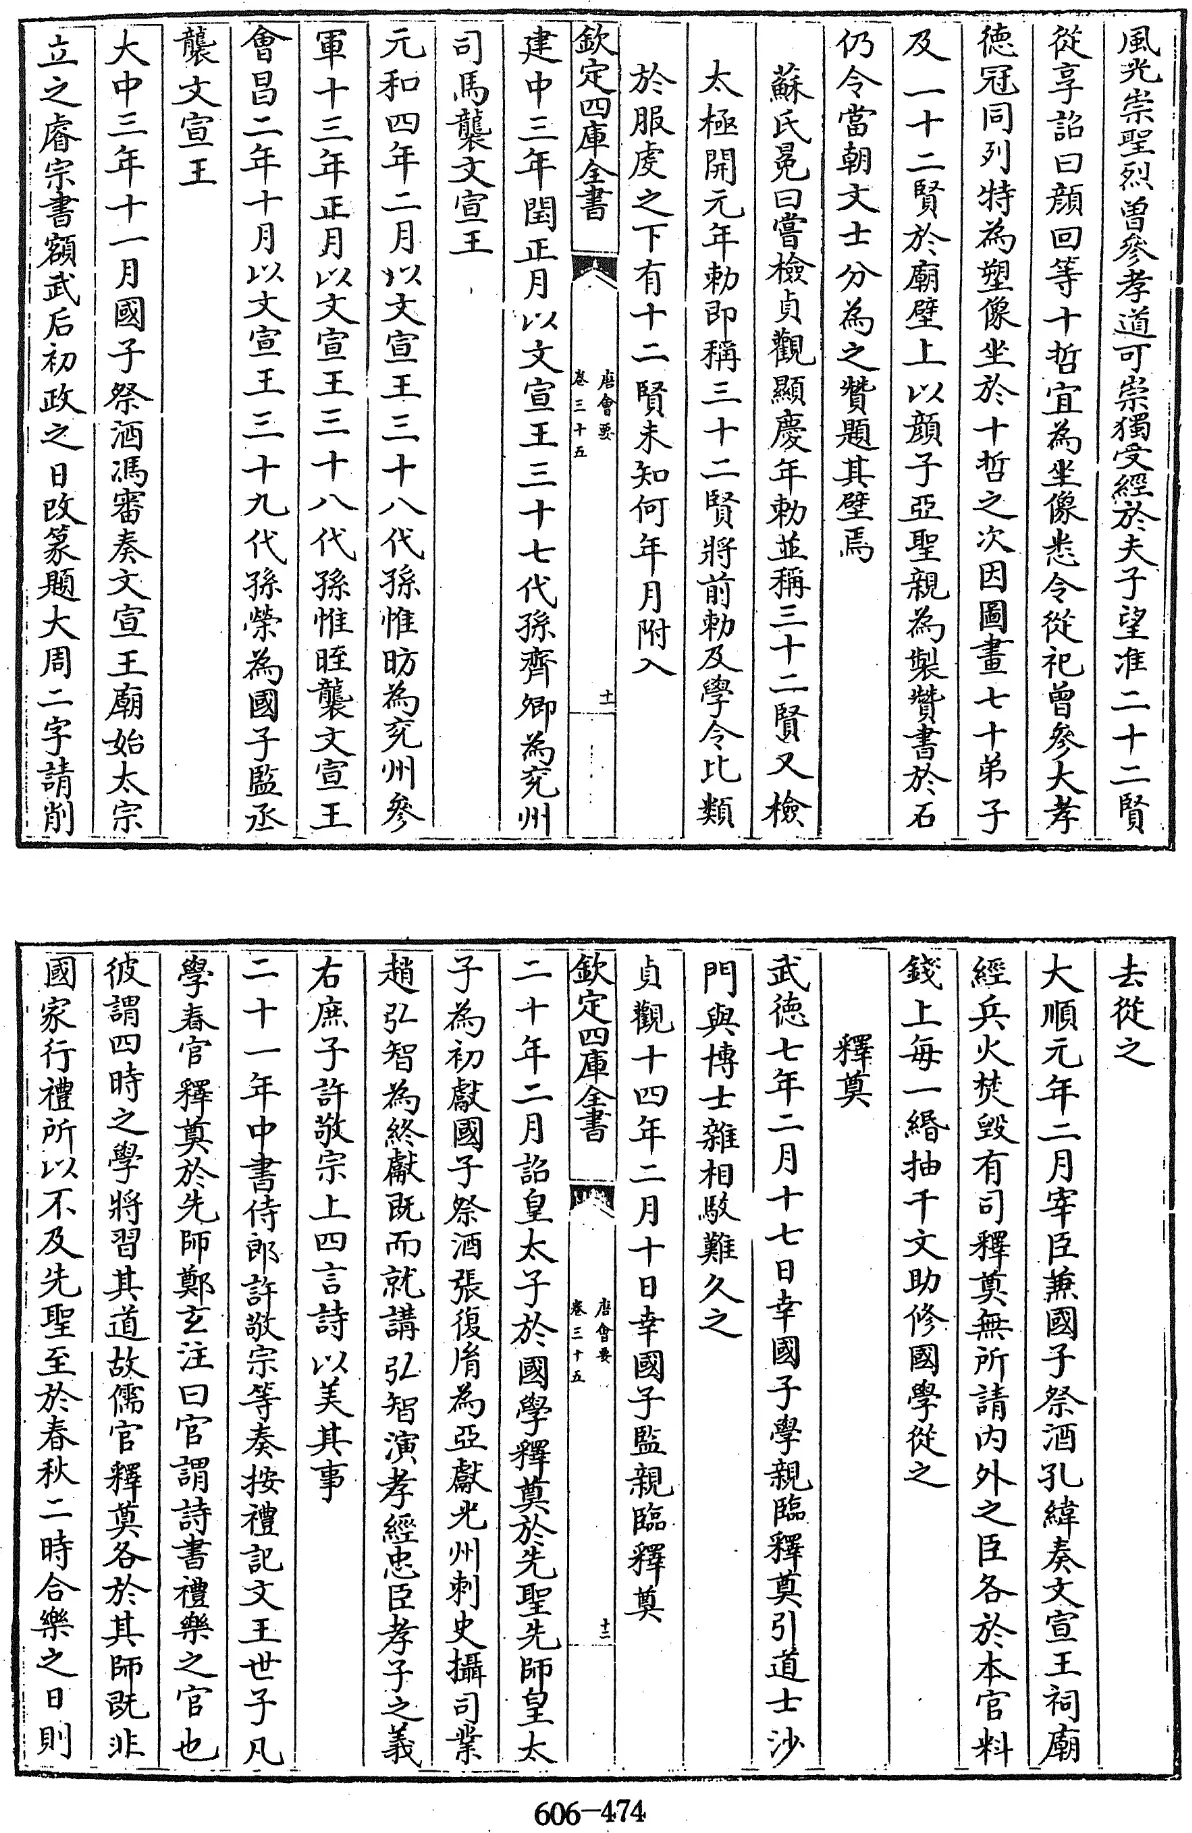 風光崇聖烈曽參孝道可崇獨受經於夫子望准二十二賢
從享詔曰顔回等十哲宜為坐像悉令從祀曾參大孝
德冠同列特為塑像坐於十哲之次因圖畫七十弟子
及一十二賢於廟壁上以顔子亞聖親為製贊書於石
仍令當朝文士分為之贊題其壁焉
蘇氏冕曰嘗檢貞觀顯慶年勅並稱三十二賢又檢
太極開元年勅即稱三十二賢將前勅及學令比類
於服虔之下有十二賢未知何年月附入
欽定四庫全書
唐會要
卷三十五
十一
建中三年閏正月以文宣王三十七代孫齊卿為兖州
司馬襲文宣王
元和四年二月以文宣王三十八代孫惟昉為兖州參
軍十三年正月以文宣王三十八代孫惟晊襲文宣王
會昌二年十月以文宣王三十九代孫榮為國子監丞
襲文宣王
大中三年十一月國子祭酒馮審奏文宣王廟始太宗
立之睿宗書額武后初政之日改篆題大周二字請削
去從之
大順元年二月宰臣兼國子祭酒孔緯奏文宣王祠廟
經兵火焚毀有司釋奠無所請内外之臣各於本官料
錢上每一緡抽千文助修國學從之
釋奠
武德七年二月十七日幸國子學親臨釋奠引道士沙
門與博士雜相駮難久之
貞觀十四年二月十日幸國子監親臨釋奠
欽定四庫全書
唐會要
卷三十五
十二
二十年二月詔皇太子於國學釋奠於先聖先師皇太
子為初獻國子祭酒張復胤為亞獻光州刺史攝司業
趙弘智為終獻既而就講弘智演孝經忠臣孝子之義
右庶子許敬宗上四言詩以美其事
二十一年中書侍郎許敬宗等奏按禮記文王世子凡
學春官釋奠於先師鄭玄注曰官謂詩書禮樂之官也
彼謂四時之學將習其道故儒官釋奠各於其師既非
國家行禮所以不及先聖至於春秋二時合樂之日則
606-474